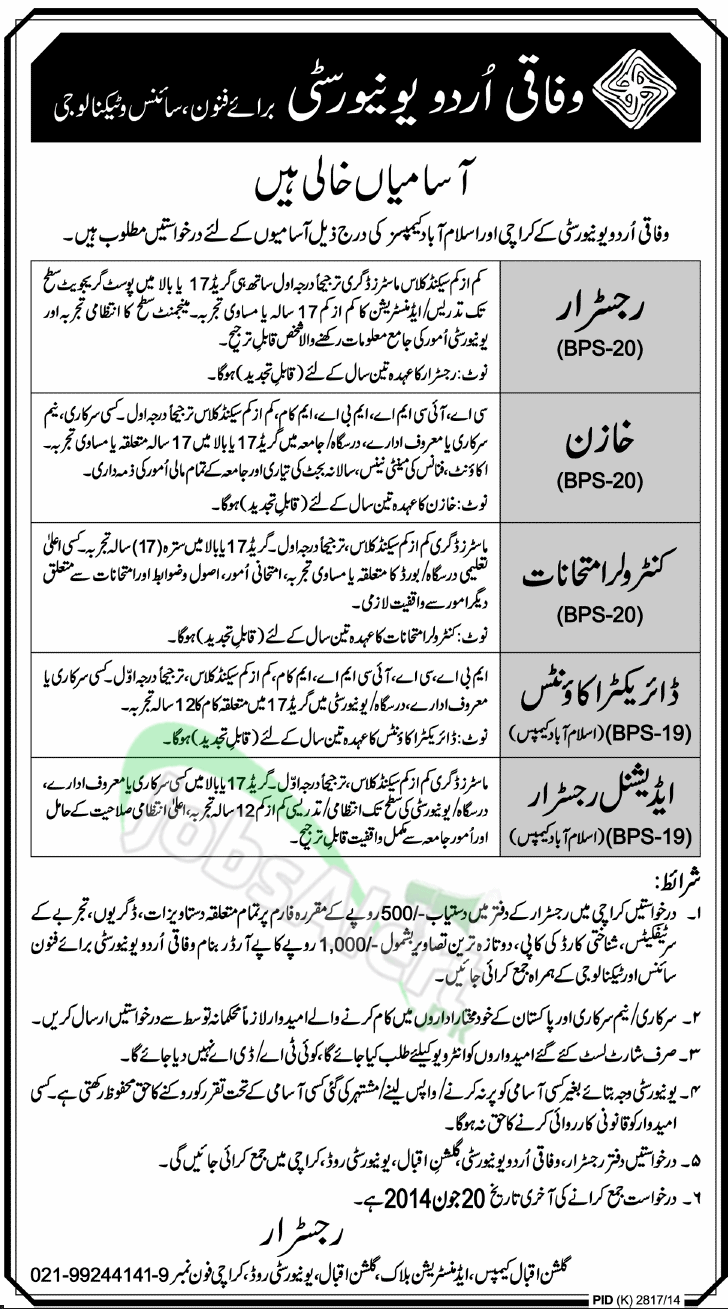 وفاقی اُردو یونیورسٹی برائے فنون، سائنس و ٹیکنالوجی
آسامیاں خالی ہیں
وفاقی اُردو یونیورسٹی کے کراچی اور اسلام آباد کیمپسز کی درج ذیل آسامیوں کے لئے درخواستیں مطلوب ہیں۔
رجسٹرار
(BPS-20)
کم از کم سیکنڈ کلاس ماسٹرز ڈگری ترجیحاً درجہ اول ساتھ ہی گریڈ 17 یا بالا میں پوسٹ گریجویٹ سطح
تک تدریس/ایڈمنسٹریشن کا کم از کم 17 سالہ یا مساوی تجربہ۔ مینجمنٹ سطح کا انتظامی تجربہ اور
یونیورسٹی اُمور کی جامع معلومات رکھنے والا شخص قابلِ ترجیح۔
نوٹ: رجسٹرار کا عہدہ تین سال کے لئے (قابلِ تجدید) ہوگا۔
خازن
(BPS-20)
سی اے، آئی سی ایم اے، ایم بی اے، ایم کام، کم از کم سیکنڈ کلاس ترجیحاً درجہ اول۔ کسی سرکاری، نیم
سرکاری یا معروف ادارے، درسگاہ/جامعہ میں گریڈ 17 یا بالا میں 17 سالہ متعلقہ یا مساوی تجربہ۔
اکاؤنٹ، فنانس کی مینٹی نینس، سالانہ بجٹ کی تیاری اور جامعہ کے تمام مالی اُمور کی ذمہ داری۔
نوٹ: خازن کا عہدہ تین سال کے لئے (قابلِ تجدید) ہوگا۔
کنٹرولر امتحانات
(BPS-20)
ماسٹرز ڈگری کم از کم سیکنڈ کلاس، ترجیحاً درجہ اول۔ گریڈ 17 یا بالا میں سترہ (17) سالہ تجربہ۔ کسی اعلیٰ
تعلیمی درسگاہ/بورڈ کا متعلقہ یا مساوی تجربہ، امتحانی اُمور، اصول و ضوابط اور امتحانات سے متعلق
دیگر امور سے واقفیت لازمی۔
نوٹ: کنٹرولر امتحانات کا عہدہ تین سال کے لئے (قابلِ تجدید) ہوگا۔
ڈائریکٹر اکاؤنٹس
(BPS-19) (اسلام آباد کیمپس)
ایم بی اے، سی اے، آئی سی ایم اے، ایم کام، کم از کم سیکنڈ کلاس، ترجیحاً درجہ اوّل۔ کسی سرکاری یا
معروف ادارے، درسگاہ/یونیورسٹی میں گریڈ 17 میں متعلقہ کام کا 12 سالہ تجربہ۔
نوٹ: ڈائریکٹر اکاؤنٹس کا عہدہ تین سال کے لئے (قابلِ تجدید) ہوگا۔
ایڈیشنل رجسٹرار
(BPS-19) (اسلام آباد کیمپس)
ماسٹرز ڈگری کم از کم سیکنڈ کلاس، ترجیحاً درجہ اوّل۔ گریڈ 17 یا بالا میں کسی سرکاری یا معروف ادارے،
درسگاہ/یونیورسٹی کی سطح تک انتظامی/تدریسی کم از کم 12 سالہ تجربہ، اعلیٰ انتظامی صلاحیت کے حامل
اور اُمور جامعہ سے مکمل واقفیت قابلِ ترجیح۔
JobsAlert.pk
شرائط:
۱۔ درخواستیں کراچی میں رجسٹرار کے دفتر میں دستیاب -/500 روپے کے مقررہ فارم پر تمام متعلقہ دستاویزات، ڈگریوں، تجربے کے
سرٹیفکیٹس، شناختی کارڈ کی کاپی، دو تازہ ترین تصاویر بشمول -/1,000 روپے کا پے آرڈر بنام وفاقی اُردو یونیورسٹی برائے فنون
سائنس اور ٹیکنالوجی کے ہمراہ جمع کرائی جائیں۔
۲۔ سرکاری/نیم سرکاری اور پاکستان کے خودمختار اداروں میں کام کرنے والے امیدوار لازماً محکمانہ توسط سے درخواستیں ارسال کریں۔
۳۔ صرف شارٹ لسٹ کئے گئے امیدواروں کو انٹرویو کیلئے طلب کیا جائے گا، کوئی ٹی اے/ڈی اے نہیں دیا جائے گا۔
۴۔ یونیورسٹی وجہ بتائے بغیر کسی آسامی کو پر نہ کرنے/واپس لینے/مشتہر کی گئی کسی آسامی کے تحت تقرر کو روکنے کا حق محفوظ رکھتی ہے۔ کسی
امیدوار کو قانونی کارروائی کرنے کا حق نہ ہوگا۔
۵۔ درخواستیں دفتر رجسٹرار، وفاقی اُردو یونیورسٹی، گلشنِ اقبال، یونیورسٹی روڈ، کراچی میں جمع کرائی جائیں گی۔
۶۔ درخواست جمع کرانے کی آخری تاریخ 20 جون 2014 ہے۔
رجسٹرار
گلشن اقبال کیمپس، ایڈمنسٹریشن بلاک، گلشن اقبال، یونیورسٹی روڈ، کراچی فون نمبر 9-99244141-021
PID (K) 2817/14